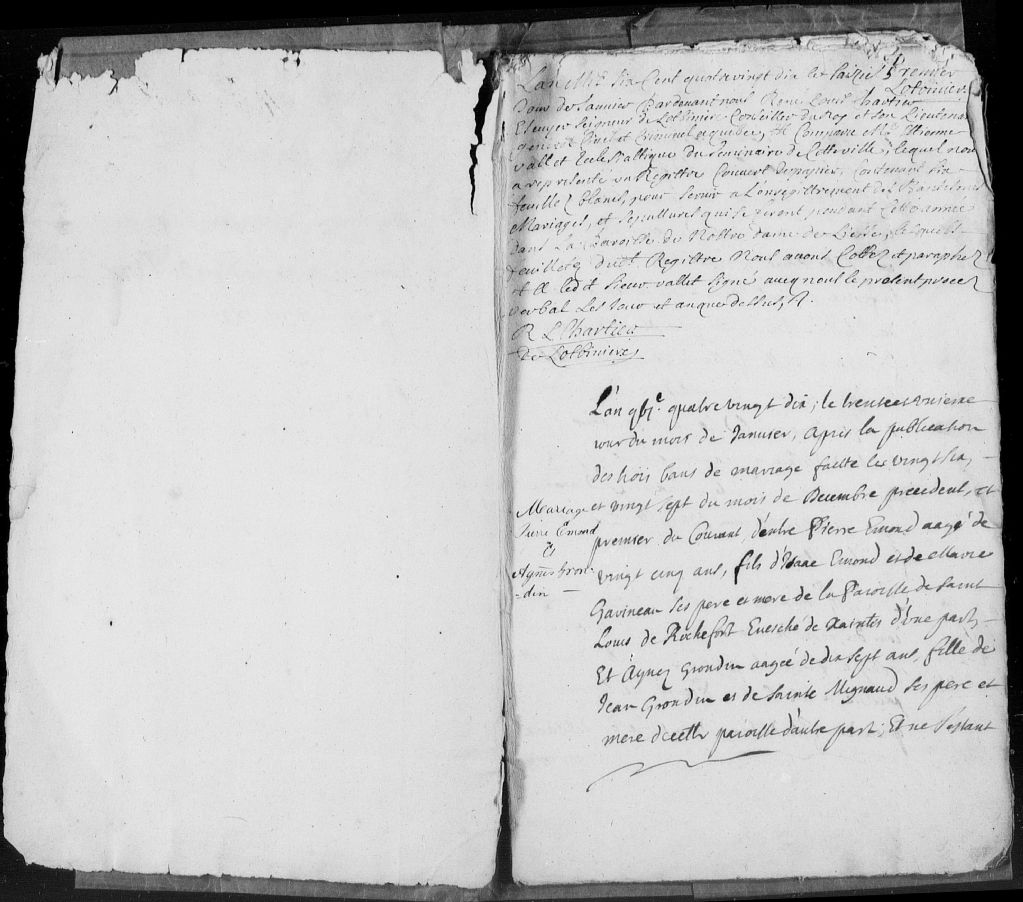 L'an Mil six Cent quatre vingt dix le
Premier
Lotbiniere
Jour de Janvier Pardevant nous René Louis Chartier
Escuyer Seigneur de Lotbiniere Conseiller du Roy et son Lieutenant
general Civil et Criminel a quebec, Est Comparu Mre Hierome
vallet Eclesiastique du Seminaire de Cette ville, lequel nous
a representé un Registre Couvert de papier, Contenant six
feuillez blancs, pour servir a L'enregistrement des Baptesmes
Mariages, et sepultures qui se feront pendant Cette année
dans La Paroisse de Nostre dame de Liesse, lesquels
feuillets dudt Registre Nous avons Cottez et paraphez
Et a led t sieur vallet signé avec nous le present procez
verbal Les Jour et an que dessus, /.
R L Chartier
De Lotbiniere
L'an gbjc. quatre vingt dix; le trente et unieme
jour du mois de Janvier, apres la publication
des trois bans de mariage faitte les vingt six,
et vingt sept du mois de Decembre precedent, et
Mariage
Pierre Emond
Et
Agnes Gron-
-din
premier du Courant, d'entre Pierre Emond aagé de
vingt cinq ans, fils d'Isaac Emond et de Marie
Gavineau ses pere et mere de la Paroisse de Saint
Louis de Rochefort Evesché de Xaintes d'une part,
Et Agnez Grondin aagée de dix sept ans, fille de
Jean Grondin et de Sainte Mignaud ses pere et
mere de cette paroisse d'autre part; Et ne s'estant